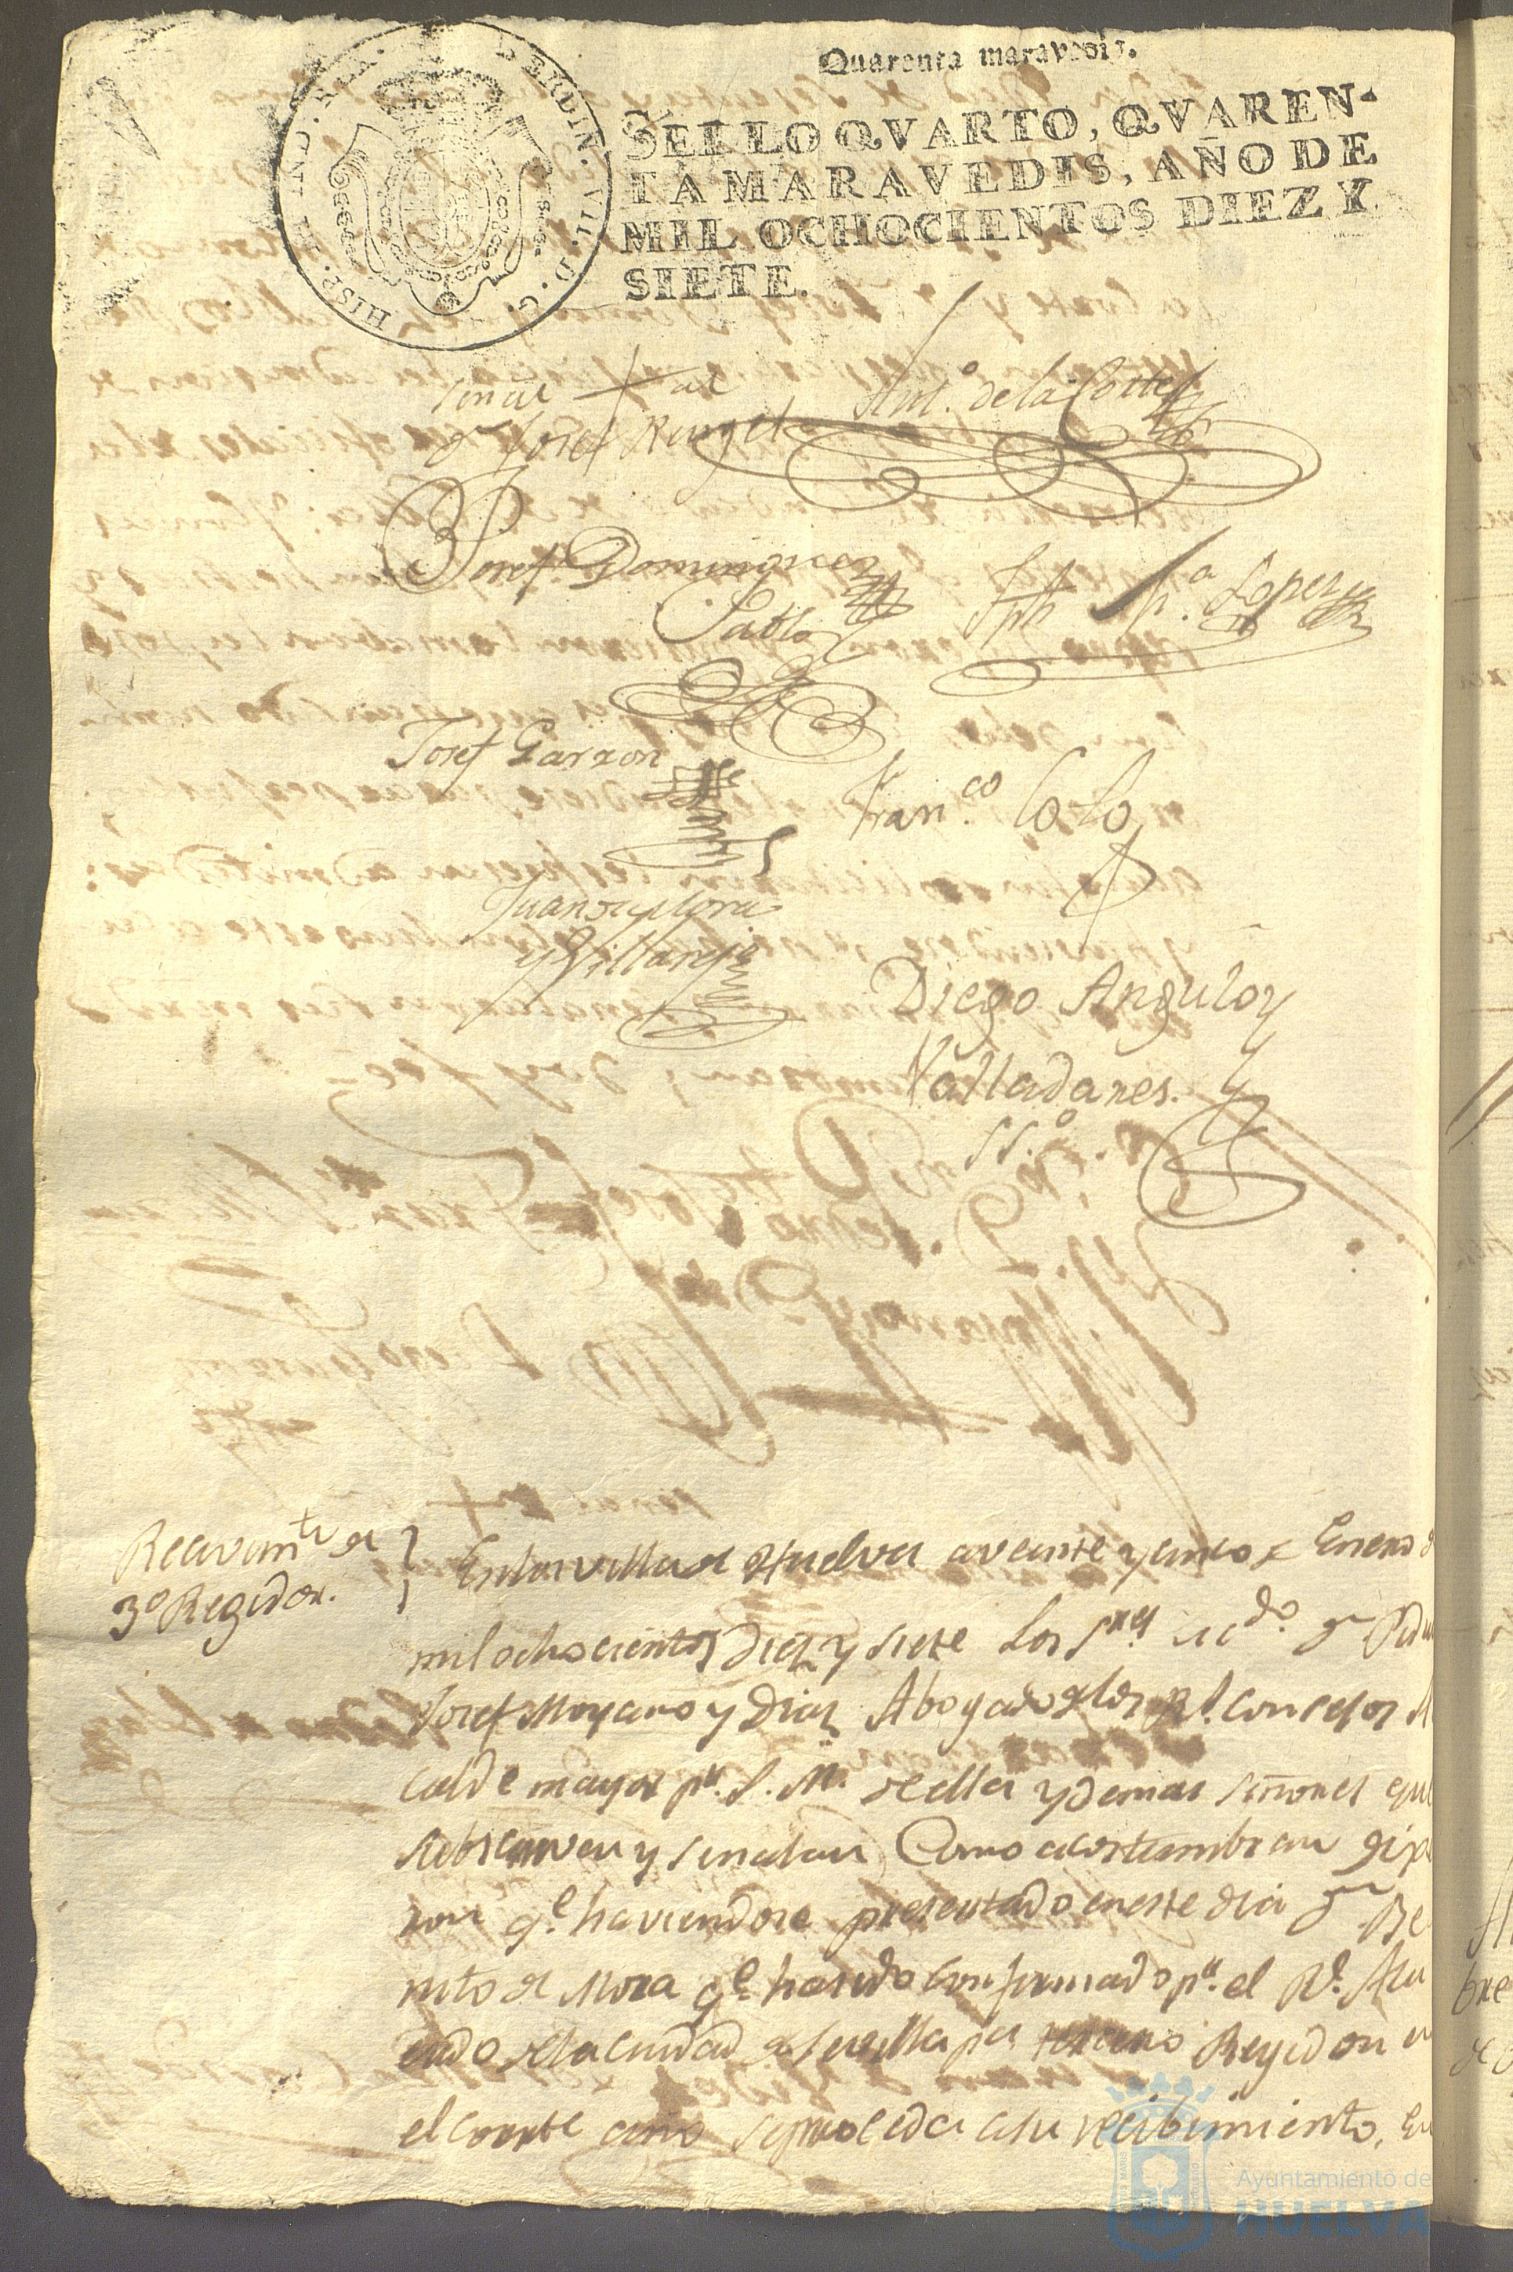 Quarenta maravedis.
HISP. ET IND. REX. FERDIN. VII. D. G.
SELLO QVARTO, QVAREN-
TA MARAVEDIS, AÑO DE
MIL OCHOCIENTOS DIEZ Y
SIETE.
señal + de
Dn Josef Rangel
Antº. de la Corte
Josef Dominguez
Pablo
Jph Mª. Lopez
Josef Garzon
Franco. Colo
Juan de Mora
y Villarejo
Diego Angulo y
Valladares.
ssº.
Recivimto de
3º Regidor.
En la villa de Huelva a veinte y cinco de Enero d
mil ochocientos diez y siete Los Sres. Licdo. Dn Pedro
Josef Moyano y Diaz Abogado de los Rs. Consejos Al
calde mayor pr. S. M. de ella y demas señores que
subscriven y señalan como acostumbran dixe
ron qe. haviendose presentado en este dia Dn Be
nito de Mora qe. ha sido confirmado pr. el Rl. Acu
erdo de la ciudad de Sevilla pa tercero Regidor en
el corrte año se proceda a su recibimiento. En
Ayuntamiento de
HUELVA